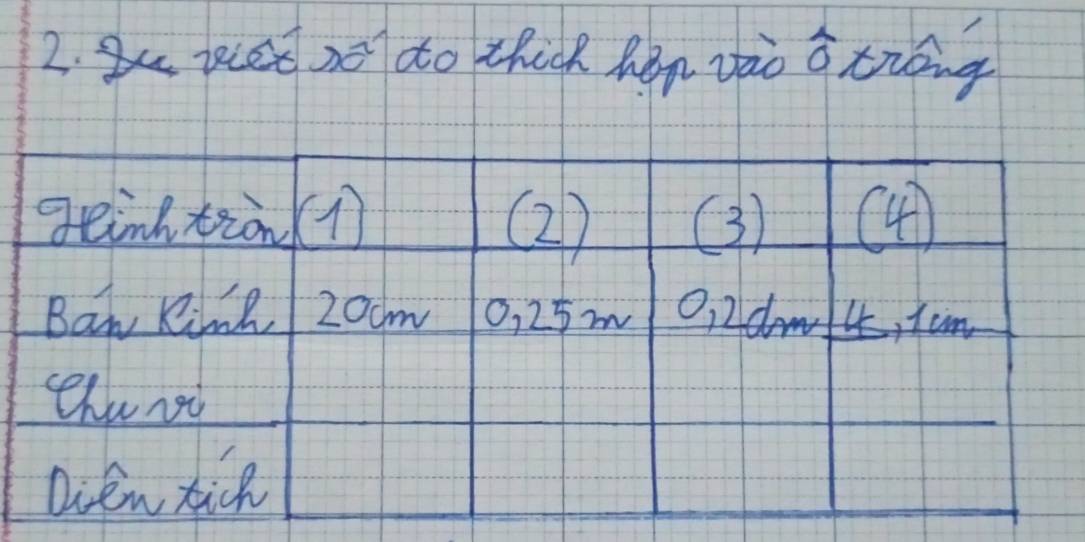 2. viết số đo thích hợp vào ô trống
Hình tròn (1) (2) (3) (4)
Bán Kính 20cm 0,25m 0,2dm 4,1cm
Chu vi
Diên tích